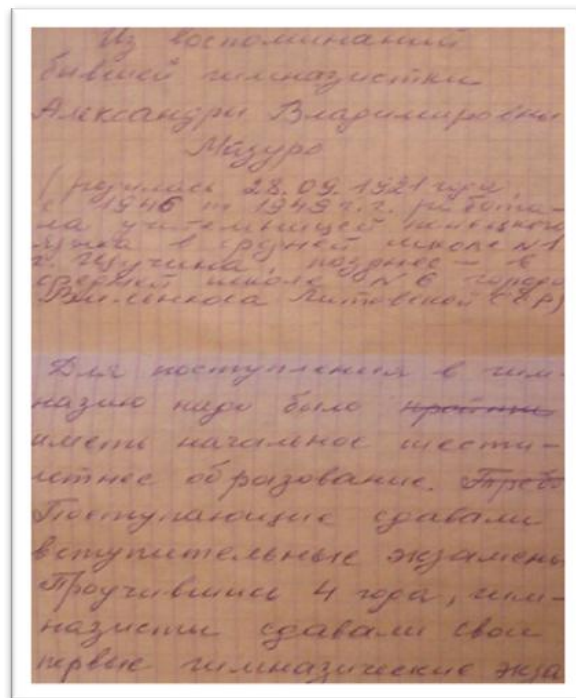 Из воспоминаний
бывшей гимназистки
Александры Владимировны
Мазуро
(родилась 28.09.1921 года,
с 1946 по 1949 г.г. работа-
ла учительницей немецкого
языка в средней школе №1
г. Щучина, позднее – в
средней школе №6 города
Вильнюса Литовской ССР)
Для поступления в гим-
назию надо было пройти
иметь начальное шести-
летнее образование. Требо
Поступающие сдавали
вступительные экзамены
Проучившись 4 года, гим-
назисты сдавали свои
первые гимназические экза